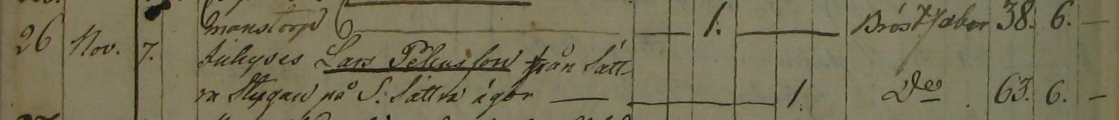 Månstorp — 1. — Bröstfeber 38. 6. —
26 Nov. 7. Inhyses Lars Pehrsson från Sätt
ra Stugan på S. Sättra ägor — 1. Do 63. 6. —